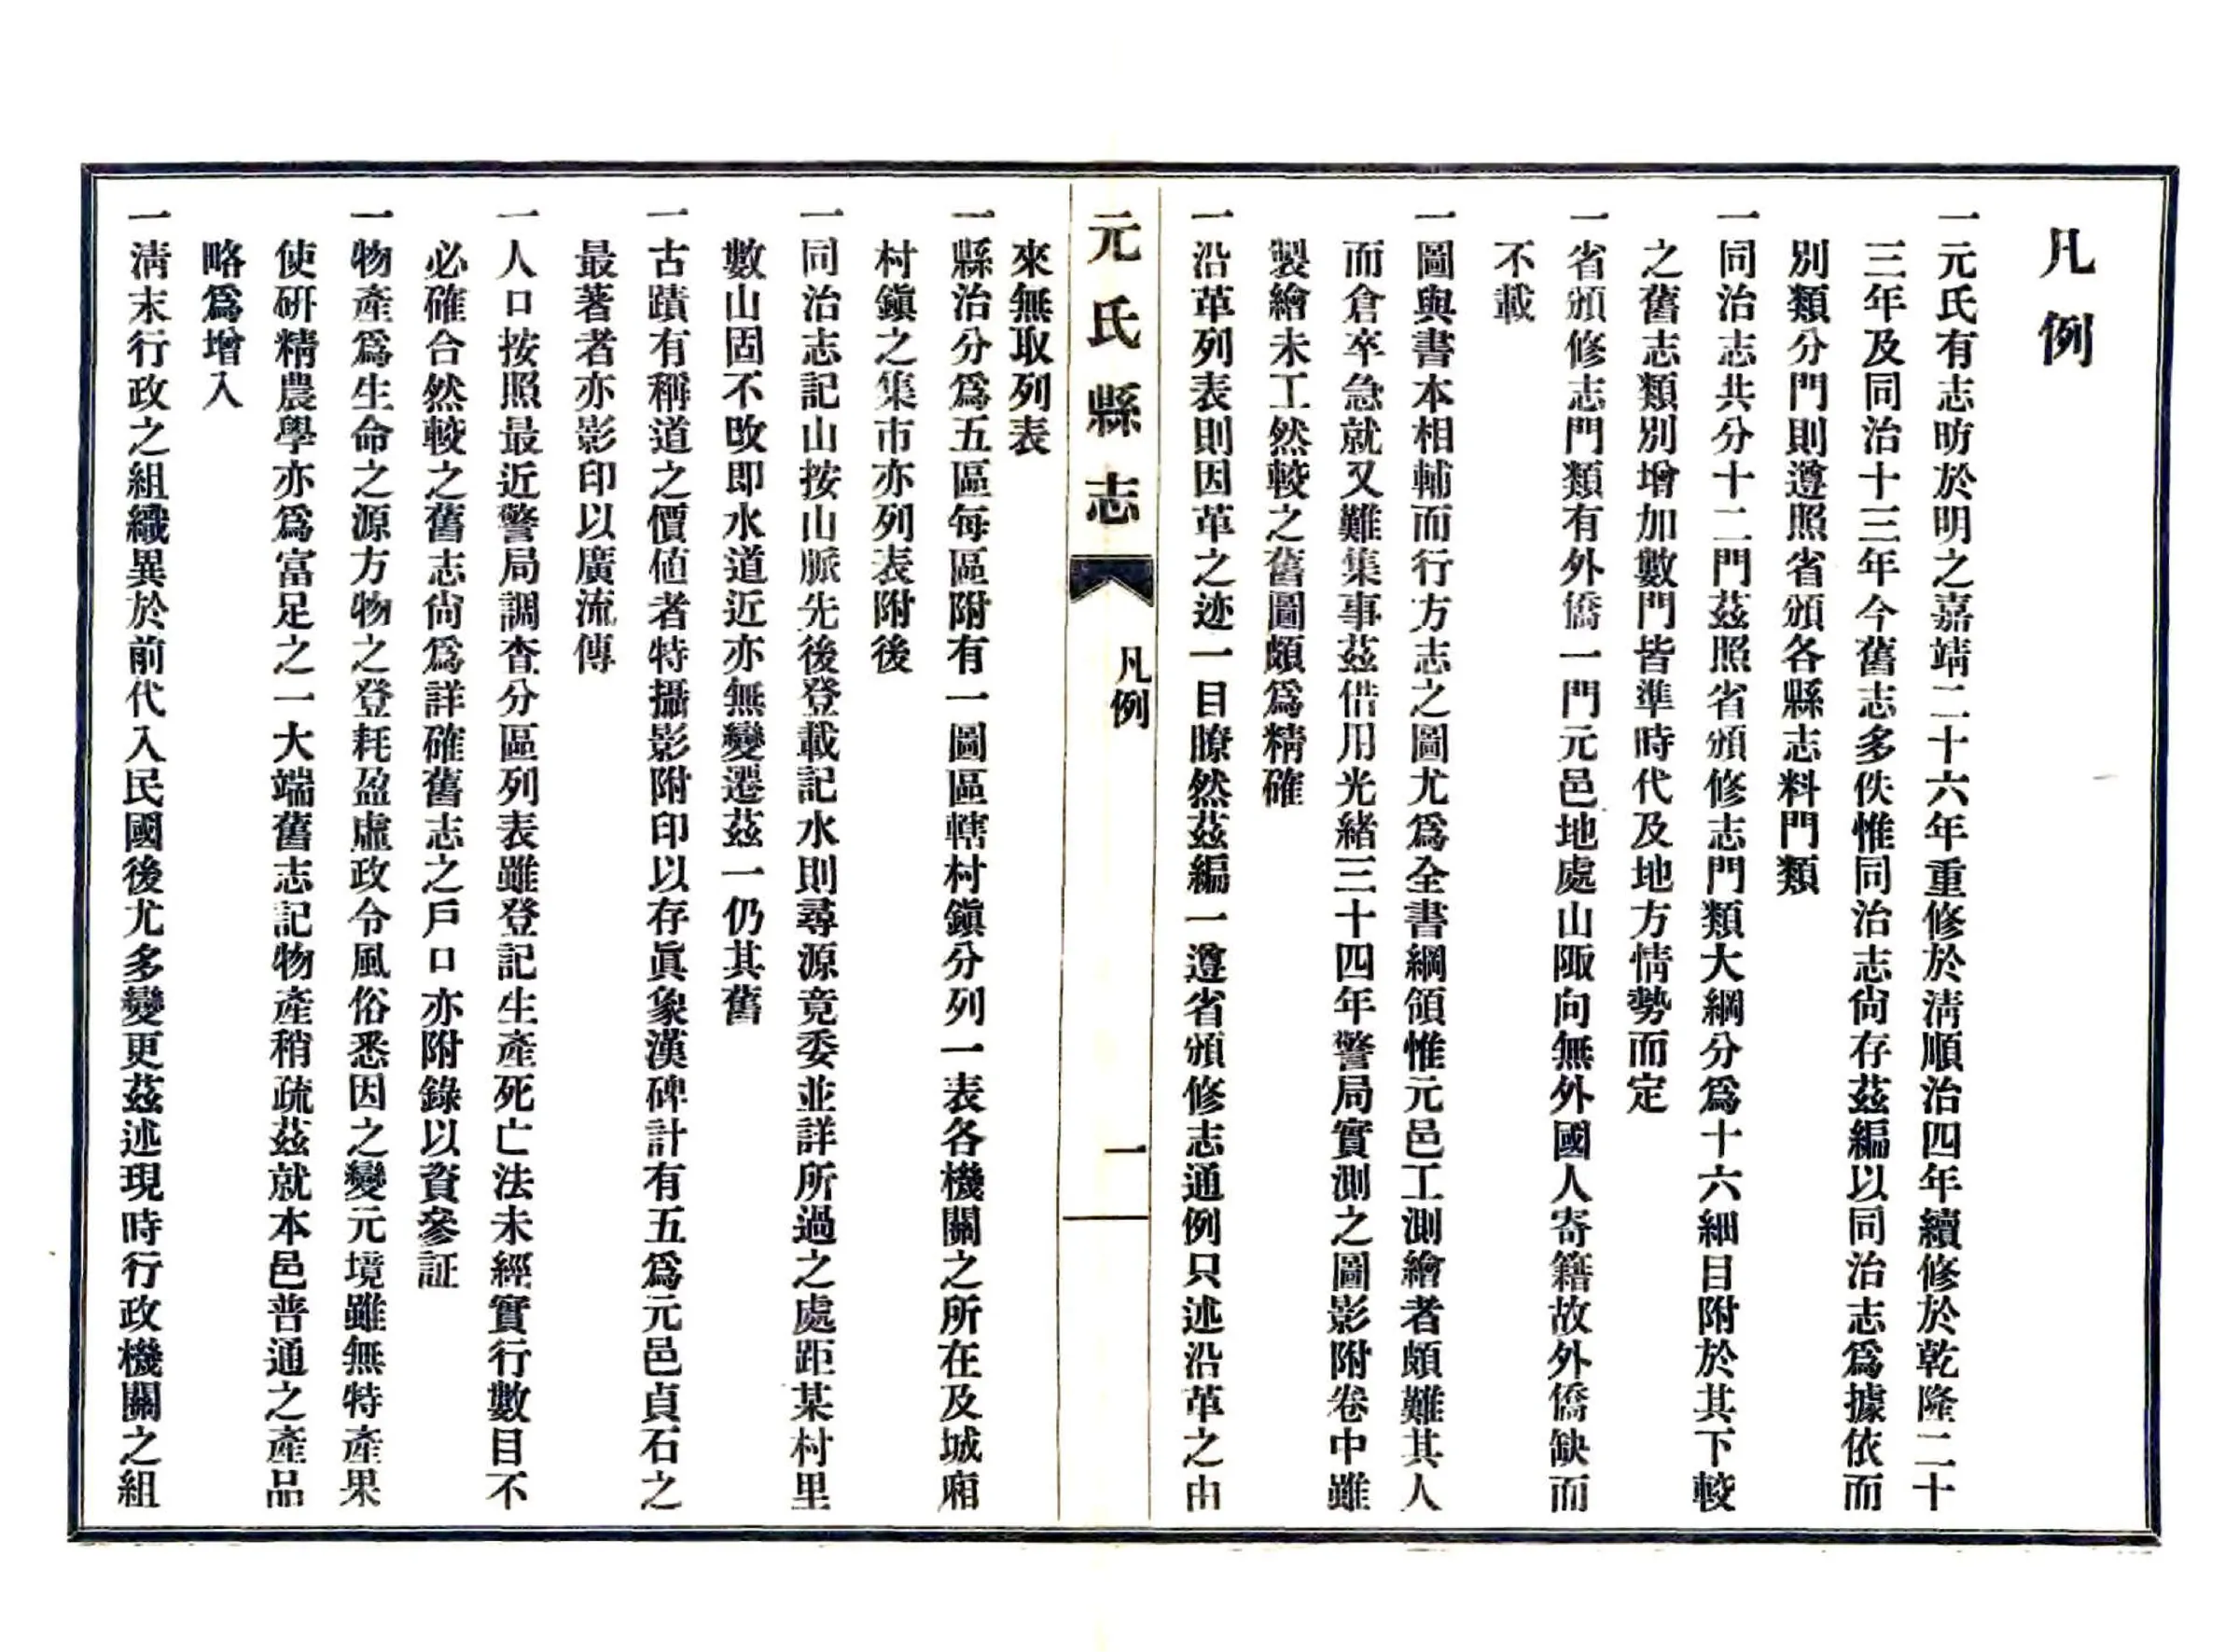 凡例
一元氏有志昉於明之嘉靖二十六年重修於淸順治四年續修於乾隆二十
三年及同治十三年今舊志多佚惟同治志尙存茲編以同治志爲據依而
別類分門則遵照省頒各縣志料門類
一同治志共分十二門茲照省頒修志門類大綱分爲十六細目附於其下較
之舊志類別增加數門皆準時代及地方情勢而定
一省頒修志門類有外僑一門元邑地處山陬向無外國人寄籍故外僑缺而
不載
一圖與書本相輔而行方志之圖尤爲全書綱領惟元邑工測繪者頗難其人
而倉卒急就又難集事茲借用光緒三十四年警局實測之圖影附卷中雖
製繪未工然較之舊圖頗爲精確
一沿革列表則因革之迹一目瞭然茲編一遵省頒修志通例只述沿革之由
元氏縣志
凡例
一
來無取列表
一縣治分爲五區每區附有一圖區轄村鎭分列一表各機關之所在及城廂
村鎭之集市亦列表附後
一同治志記山按山脈先後登載記水則尋源竟委並詳所過之處距某村里
數山固不改即水道近亦無變遷茲一仍其舊
一古蹟有稱道之價値者特攝影附印以存眞象漢碑計有五爲元邑貞石之
最著者亦影印以廣流傳
一人口按照最近警局調查分區列表雖登記生產死亡法未經實行數目不
必確合然較之舊志尙爲詳確舊志之戶口亦附錄以資參証
一物產爲生命之源方物之登耗盈虛政令風俗悉因之變元境雖無特產果
使研精農學亦爲富足之一大端舊志記物產稍疏茲就本邑普通之產品
略爲增入
一淸末行政之組織異於前代入民國後尤多變更茲述現時行政機關之組